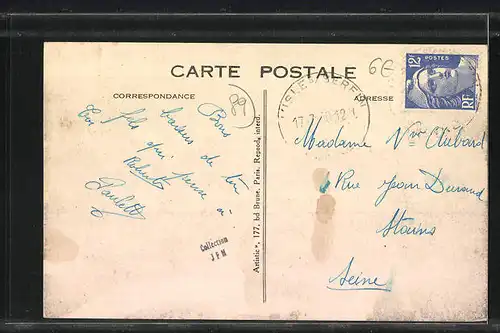 CARTE POSTALE
CORRESPONDANCE
ADRESSE
Bons
baisers de ton
fils qui pense à
toi
Robert
Paulette
Collection
J P M
Artistic*, 177, bd Brune, Paris. Reprod. interd.
89
6€
12F
POSTES
RF
17
Madame Vve
Rue Jean Durand
Stains
Seine